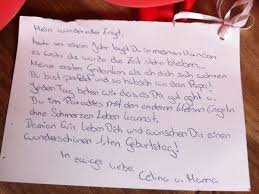 Mein wundervoller Engel,
heute vor einem Jahr lagst Du in meinen Händen
es war als würde die Zeit stehn bleiben.
Meine ersten Gedanken als ich dich sah waren
Du bist perfekt und so hübsch wie dein Papa!
Jeden Tag beten wir das es Dir gut geht u.
Du im Paradies mit den anderen kleinen Engeln
ohne Schmerzen Leben kannst.
Damian Wir lieben Dich und wünschen Dir einen
wunderschönen 1ten Geburtstag!
In ewiger Liebe
Celina u. Mama